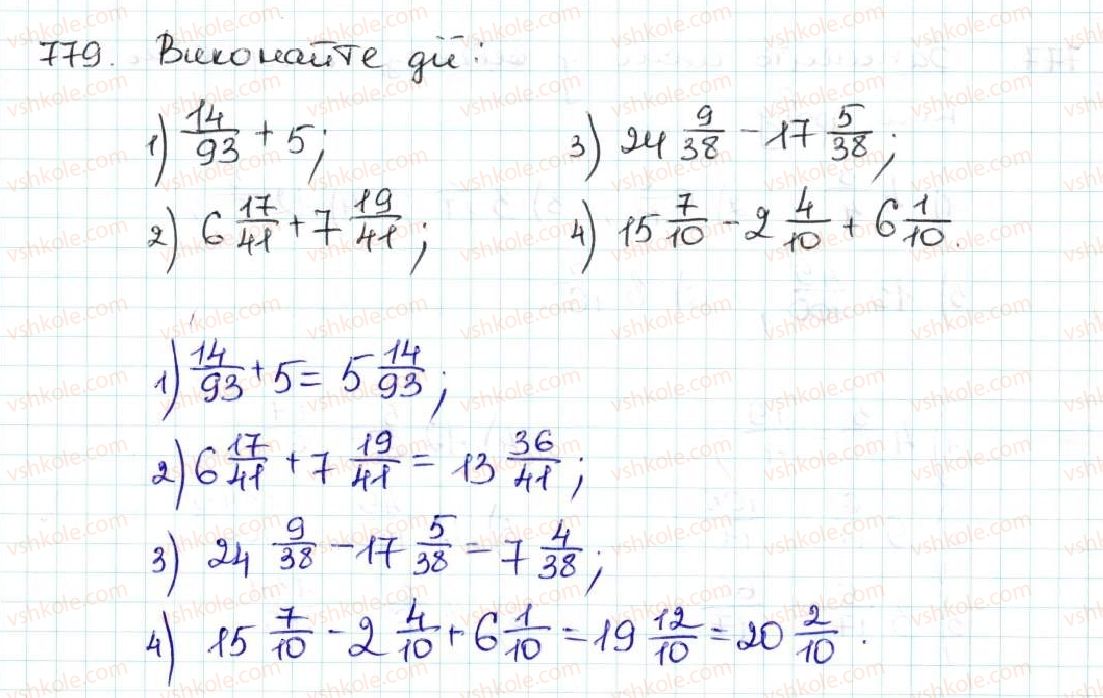 779. Виконайте дії:
1) 14/93 + 5;
3) 24 9/38 - 17 5/38;
2) 6 17/41 + 7 19/41;
4) 15 7/10 - 2 4/10 + 6 1/10.
1) 14/93 + 5 = 5 14/93;
2) 6 17/41 + 7 19/41 = 13 36/41;
3) 24 9/38 - 17 5/38 = 7 4/38;
4) 15 7/10 - 2 4/10 + 6 1/10 = 19 12/10 = 20 2/10.
vshkole.com